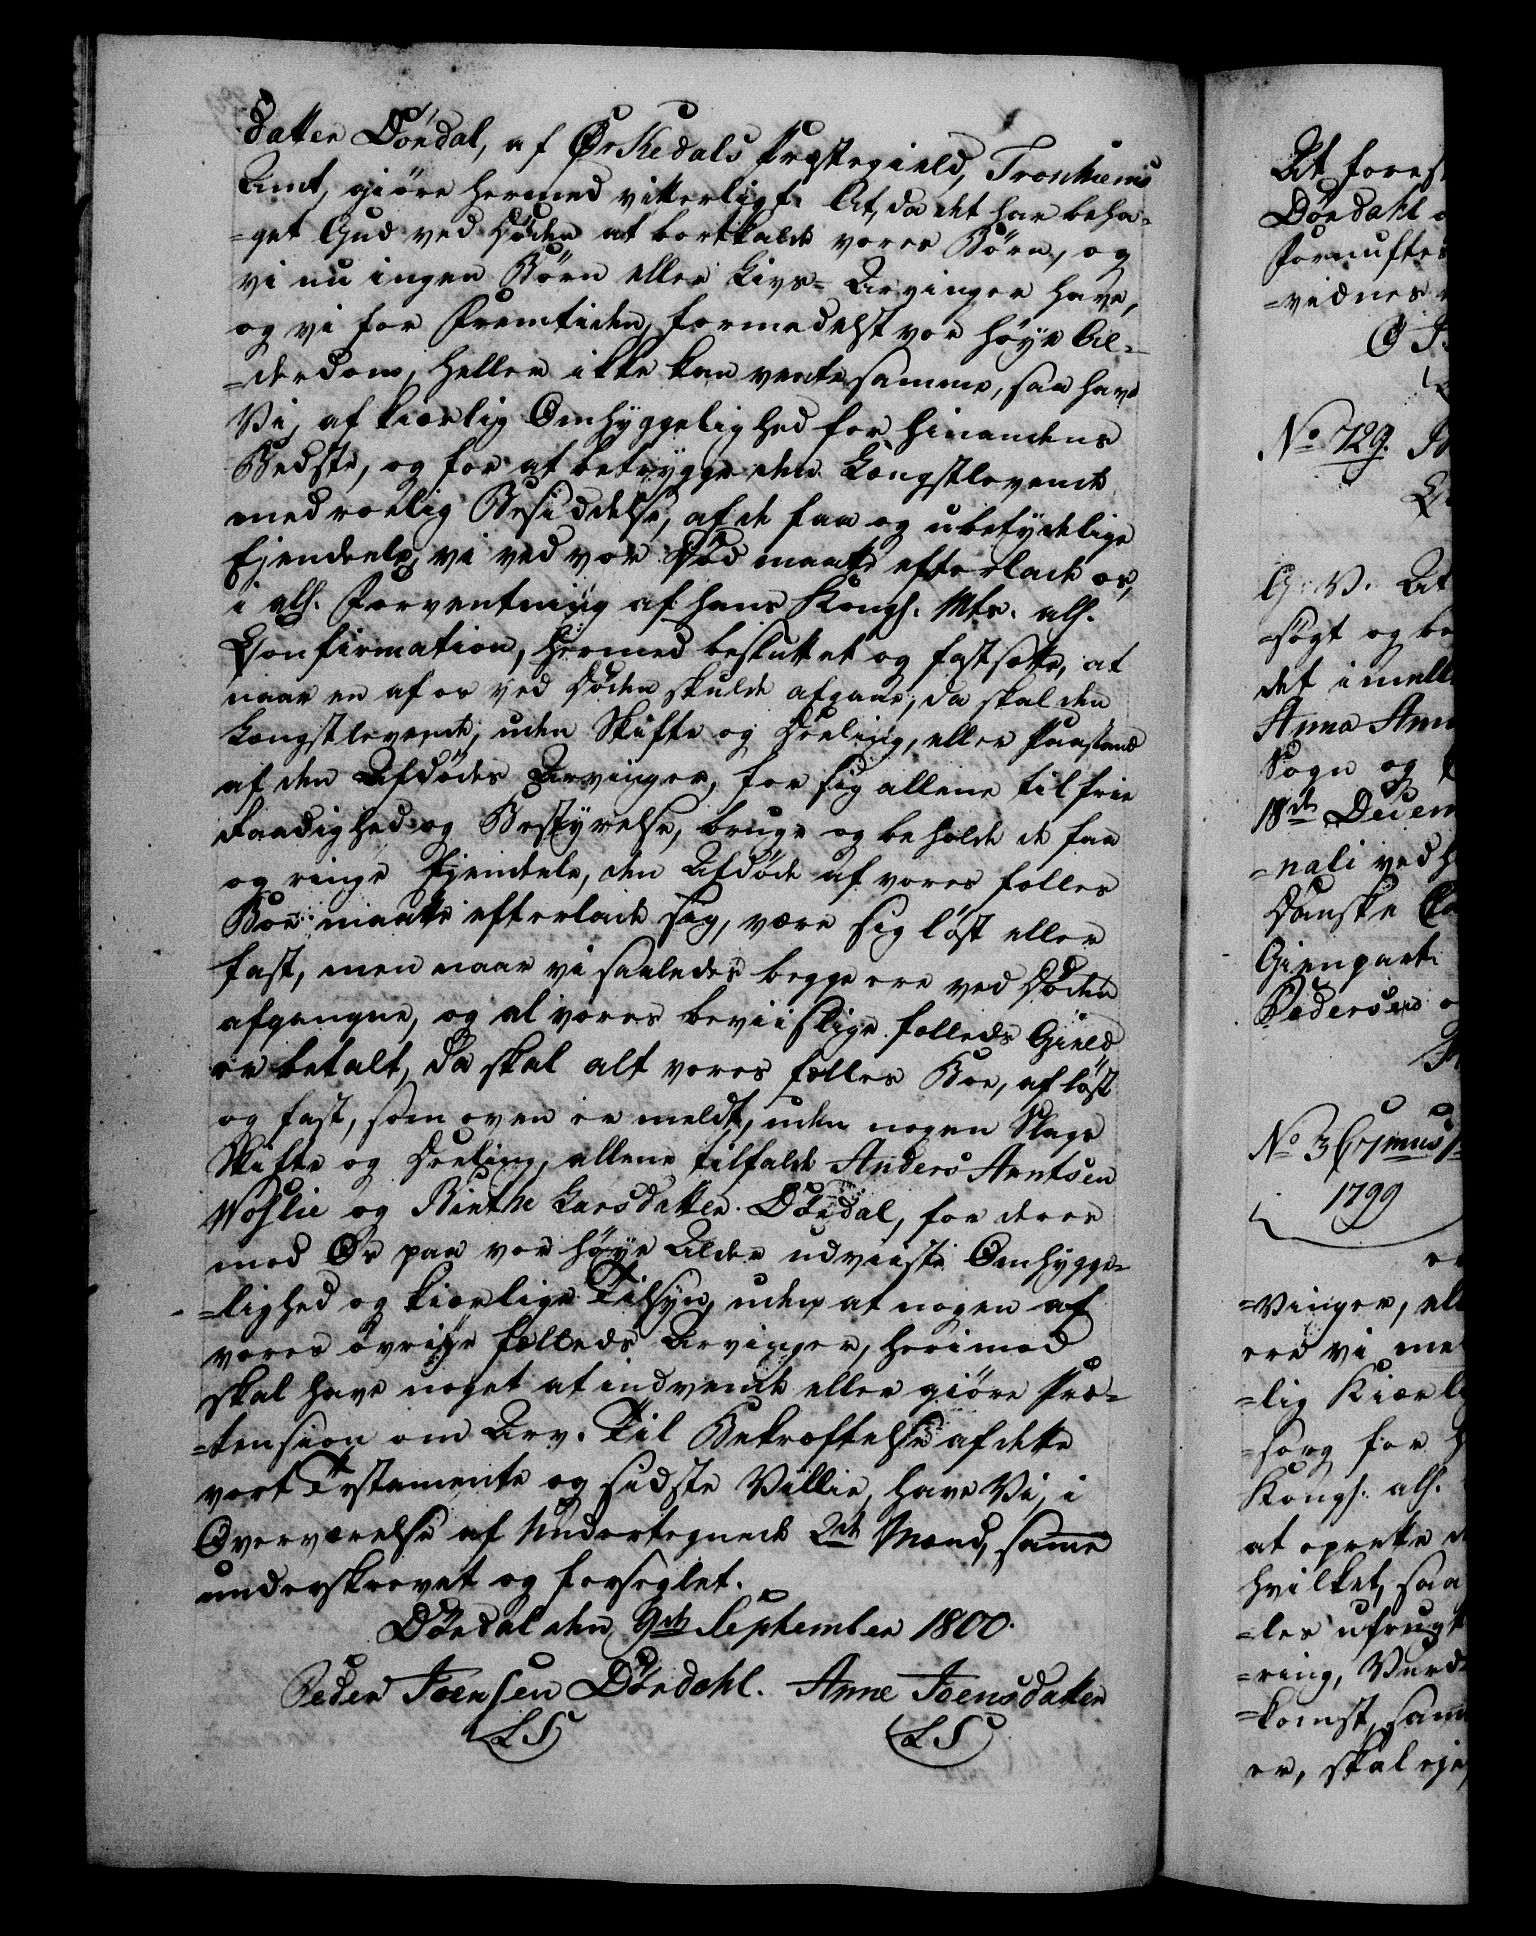 datter Dördal, af Ørkedals Præstegield, Tronhiems
Amt, giöre hermed vitterligt: At, da det har beha-
=get Gud ved Döden at bortkalde vores Börn, og
vi nu ingen Börn eller Livs-Arvinger have,
og vi for Fremtiden, formedelst vor höye Al-
=derdom, heller ikke kan vente samme, saa have
Vi, af kierlig Omhyggelighed for hinandens
Bedste, og for at betrygge den Længstlevende
med roelig Besiddelse, af de faa og ubetydelige
Ejendeele, vi ved vor Död maatte efterlade os,
i alh. Forventning af hans Kongl. Mts. alh.
Confirmation, hermed besluttet og fastsatte, at
naar en af os ved Döden skulde afgaae, da skal den
Længstlevende, uden Skifte og Deeling, eller Paastand
af den Afdödes Arvinger, for sig allene til frie
Raadighed og Bestyrelse, bruge og beholde de faa
og ringe Ejendele, den Afdöde af vores fælles
Boe maatte efterlade sig, være sig löst eller
fast, men naar vi saaledes begge ere ved Döden
afgangne, og al vores beviislige fælleds Gield
er betalt, da skal alt vores fælles Boe, af löst
og fast, som oven er meldt, uden nogen Slags
Skifte og Deeling, allene tilfalde Anders Arntsen
Woslie og Birthe Larsdatter Dördal, for deres
mod Os paa vor höye Alder udviiste Omhygge-
=lighed og kierlige Tilsyn, uden at nogen af
vores övrige fælleds Arvinger, herimod
skal have noget at indvende eller giöre Præ-
=tension om Arv. Til Bekræftelse af dette
vort Testamente og sidste Villie, have Vi, i
Overværelse af Undertegnede 2de Mænd, samme
underskrevet og forseglet.
Dördal den 9de September 1800.
Peder Joensen Dördahl. Anne Joensdatter
(LS) (LS)
At fores
Dördahl
Fornufte
=vidnes
No 729.
G: V. At
=sögt og be
det imell
Anna
Sogn og
18de Decem
=nali ved
Danske
Gienpart
Pedersen
No 3
1799
=vinger, el
ere vi me
=lig Kierl
=sorg for
Kongl. alh.
at oprette
hvilket, saa
=les
=ring, Vurd
=komst, sam
er, skal eje